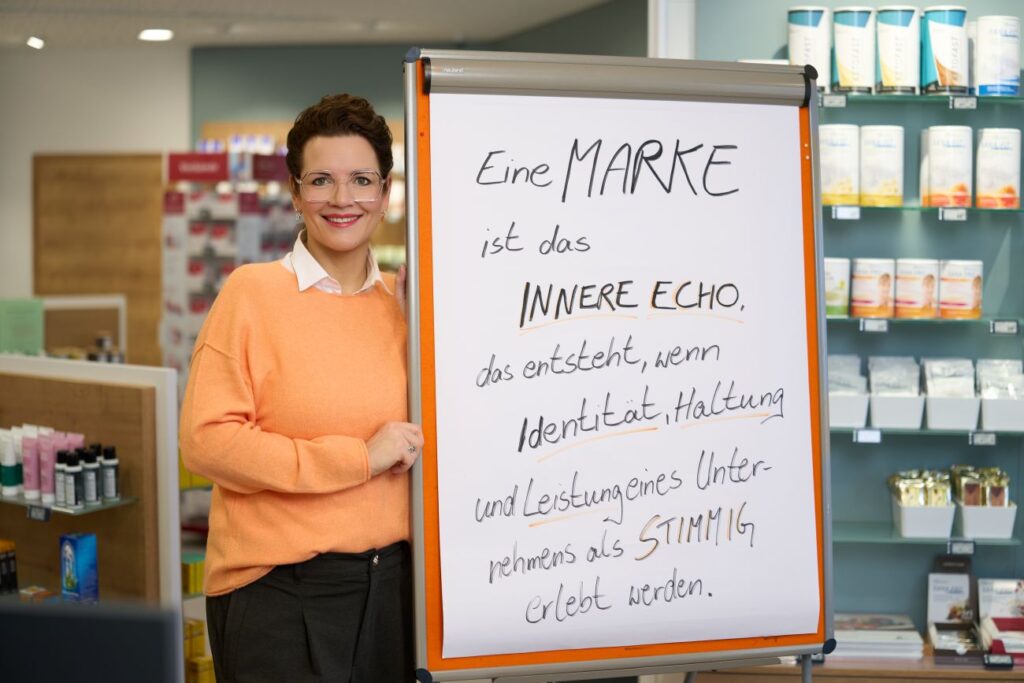 Eine MARKE
ist das
INNERE ECHO,
das entsteht, wenn
Identität, Haltung
und Leistung eines Unter-
nehmens als STIMMIG
erlebt werden.